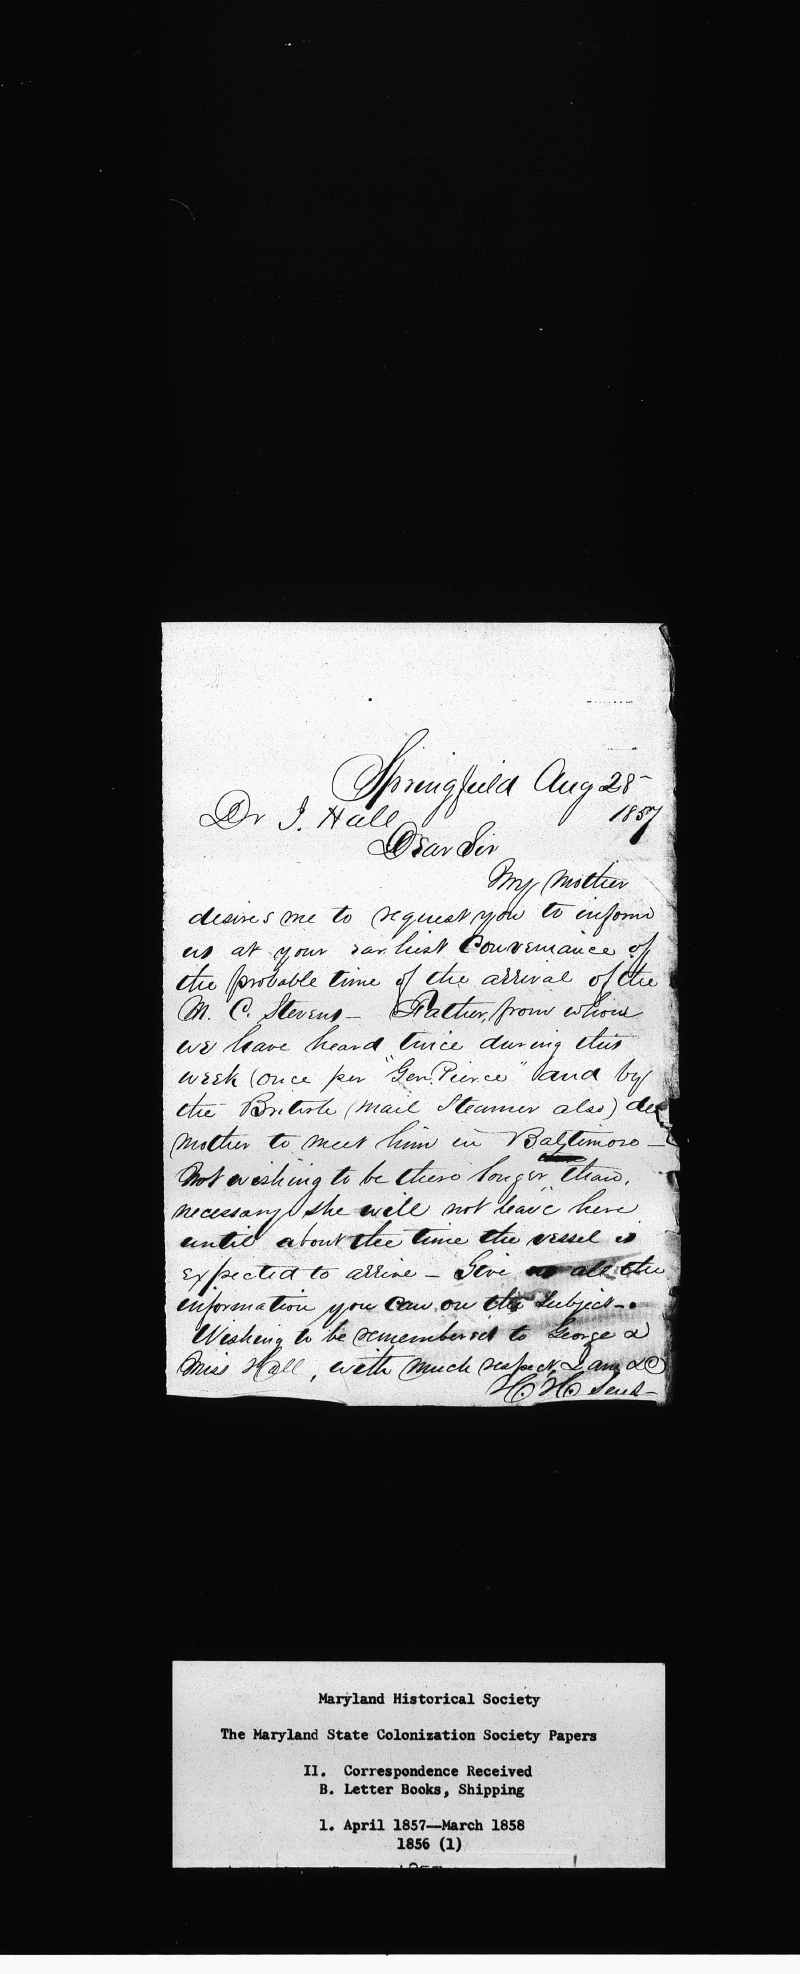 Springfield Aug 28
1857
Dr J. Hall
Dear Sir
My Mother
desires me to request you to inform
us at your earliest Conveniance of
the probable time of the arrival of the
M. C. Stevens – Father, from whom
we have heard twice during this
week (once per "Gen. Pierce" and by
the British Mail Steamer also)
mother to meet him in Baltimore –
Not wishing to be there longer than,
necessary she will not leave here
until about the time the vessel is
expected to arrive – Give us all the
information you can on the Subject –
Wishing to be remembered to George &
Miss Hall, with much respect I am &c
H. H.
Maryland Historical Society
The Maryland State Colonization Society Papers
II. Correspondence Received
B. Letter Books, Shipping
1. April 1857—March 1858
1856 (1)